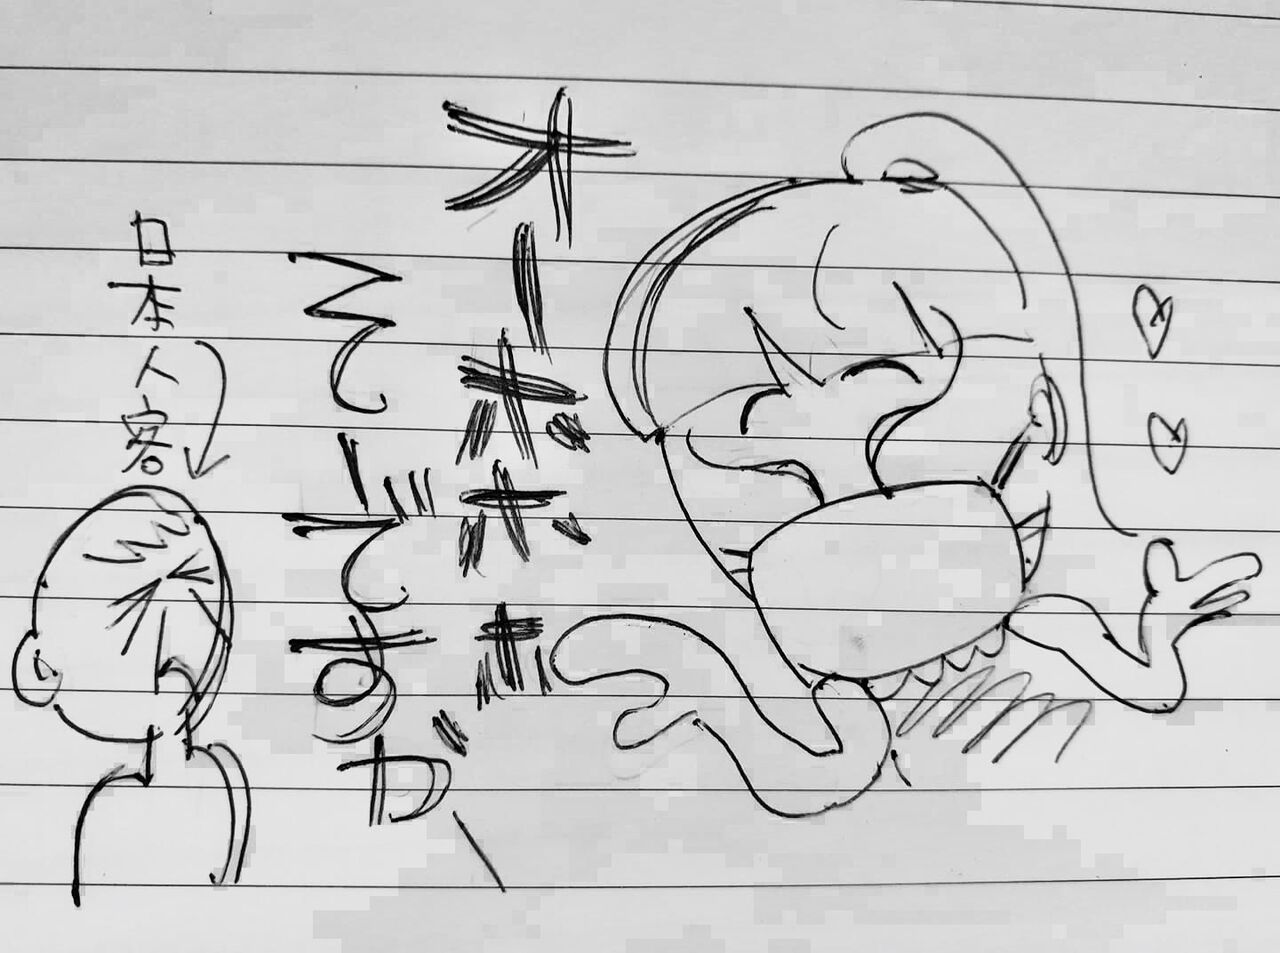 オーホホホ
そーですか
日本人客